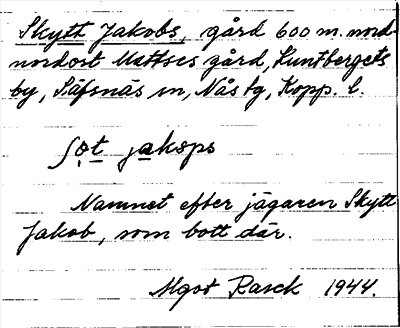 Skytt Jakobs, gård 600 m. nord-
nordost Mattses gård, Luntbergets
by, Säfsnäs sn, Nås tg, Kopp. l.
ʃọt jakops
Namnet efter jägaren Skytt
Jakob, som bott där.
Algot Rasck 1944.